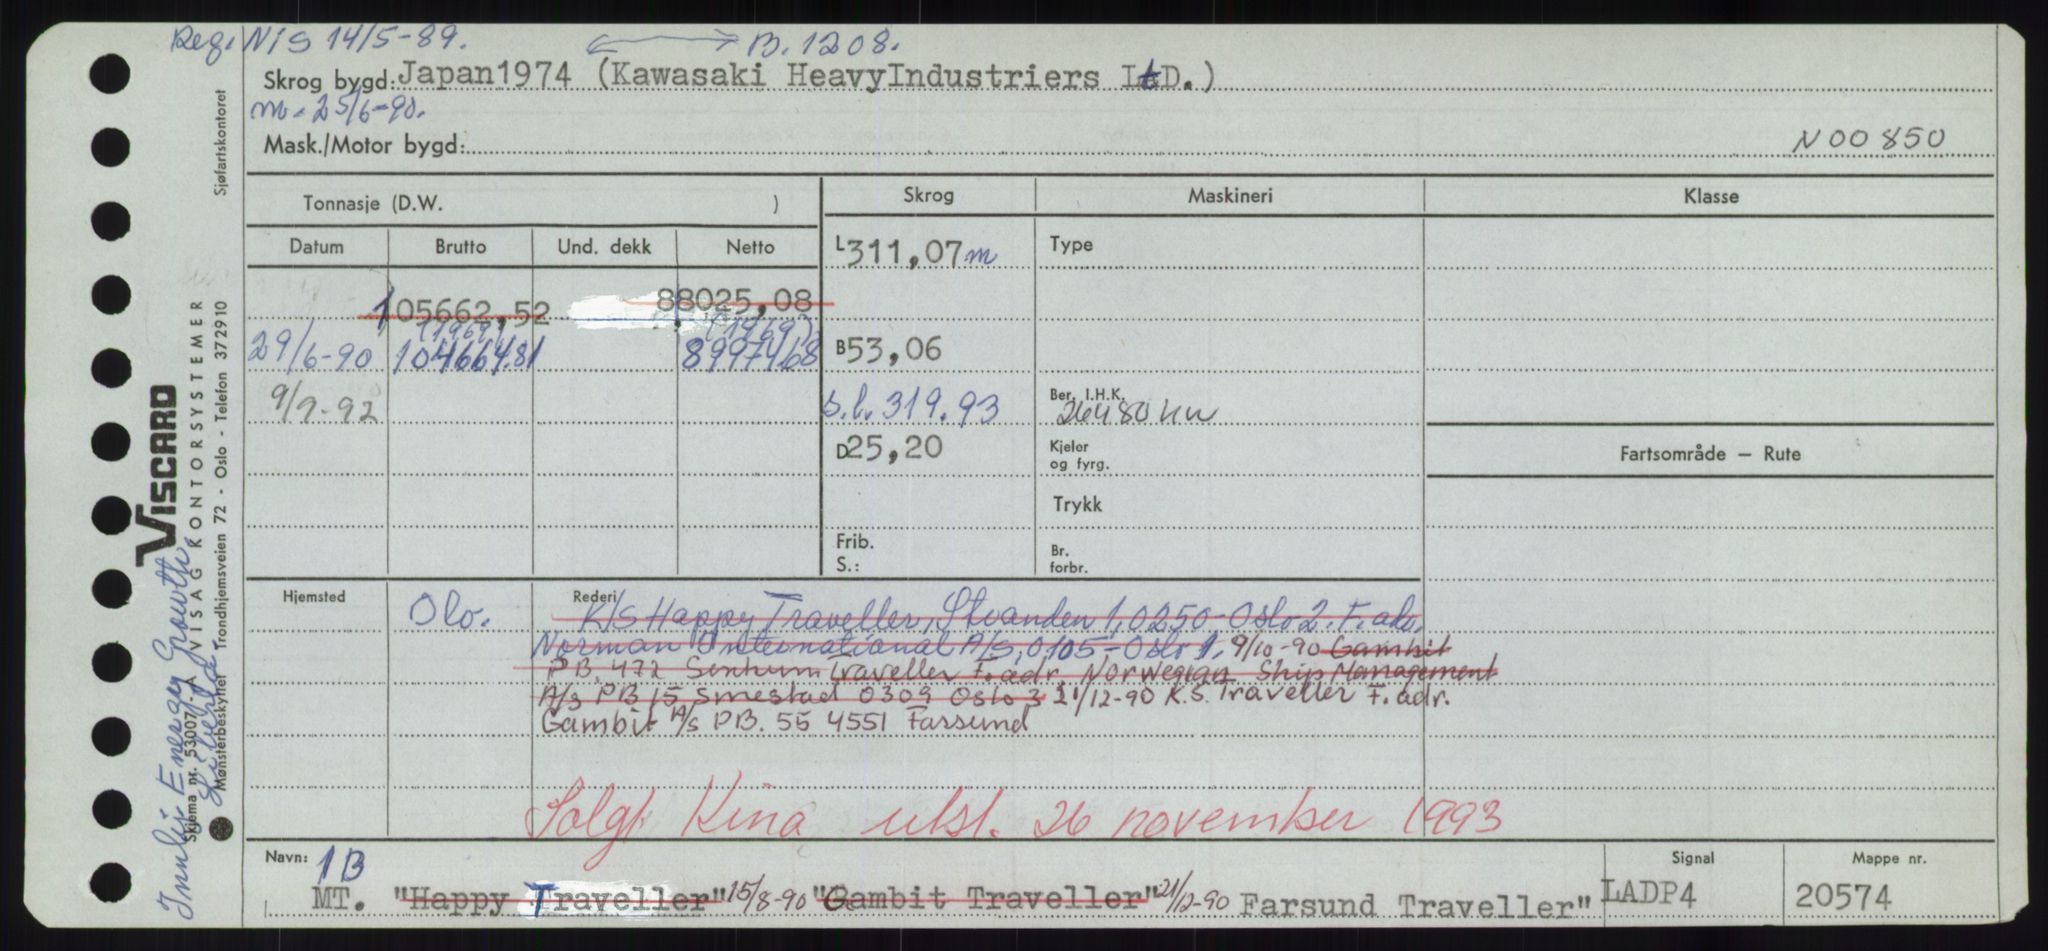 Reg. NIS 14/5-89.
B. 1208.
Skrog bygd: Japan1974 (Kawasaki HeavyIndustriers LtD.)
m. 25/6-90.
Mask./Motor bygd:
N00850
Tonnasje (D.W. )
Skrog
Maskineri
Klasse
Datum Brutto Und. dekk Netto
L 311,07 m
Type
105662,52 88025,08
(1969) (1969)
29/6-90 104664.81 89974,68
B 53,06
9/9-92
s.l. 319.93
Ber. I.H.K.
26480 KW
D 25,20
Kjeler
og fyrg.
Fartsområde — Rute
Trykk
Frib.
S.:
Br.
forbr.
Hjemsted
Olo.
Rederi
K/S Happy Traveller, Stranden 1, 0250-Oslo 2. F.adr.
Norman International A/S, 0105-Oslo 1. 9/10-90 Gambit
P.B. 472 Sentrum Traveller F.adr. Norwegian Ship Management
A/S PB 15 Smestad 0309 Oslo 3 21/12-90 K.S. Traveller F.adr.
Gambit A/S PB. 55 4551 Farsund
Solgt Kina utst. 26 november 1993
Navn: 1B
MT. "Happy Traveller" 15/8-90 "Gambit Traveller" 21/12-90 Farsund Traveller"
Signal
LADP4
Mappe nr.
20574
Innkj Energy Growth,
Liberia
VISCARD
VISAG KONTORSYSTEMER
Skjema nr. 53007-A
Sjøfartskontoret
Mønsterbeskyttet Trondhjemsveien 72 - Oslo - Telefon 372910